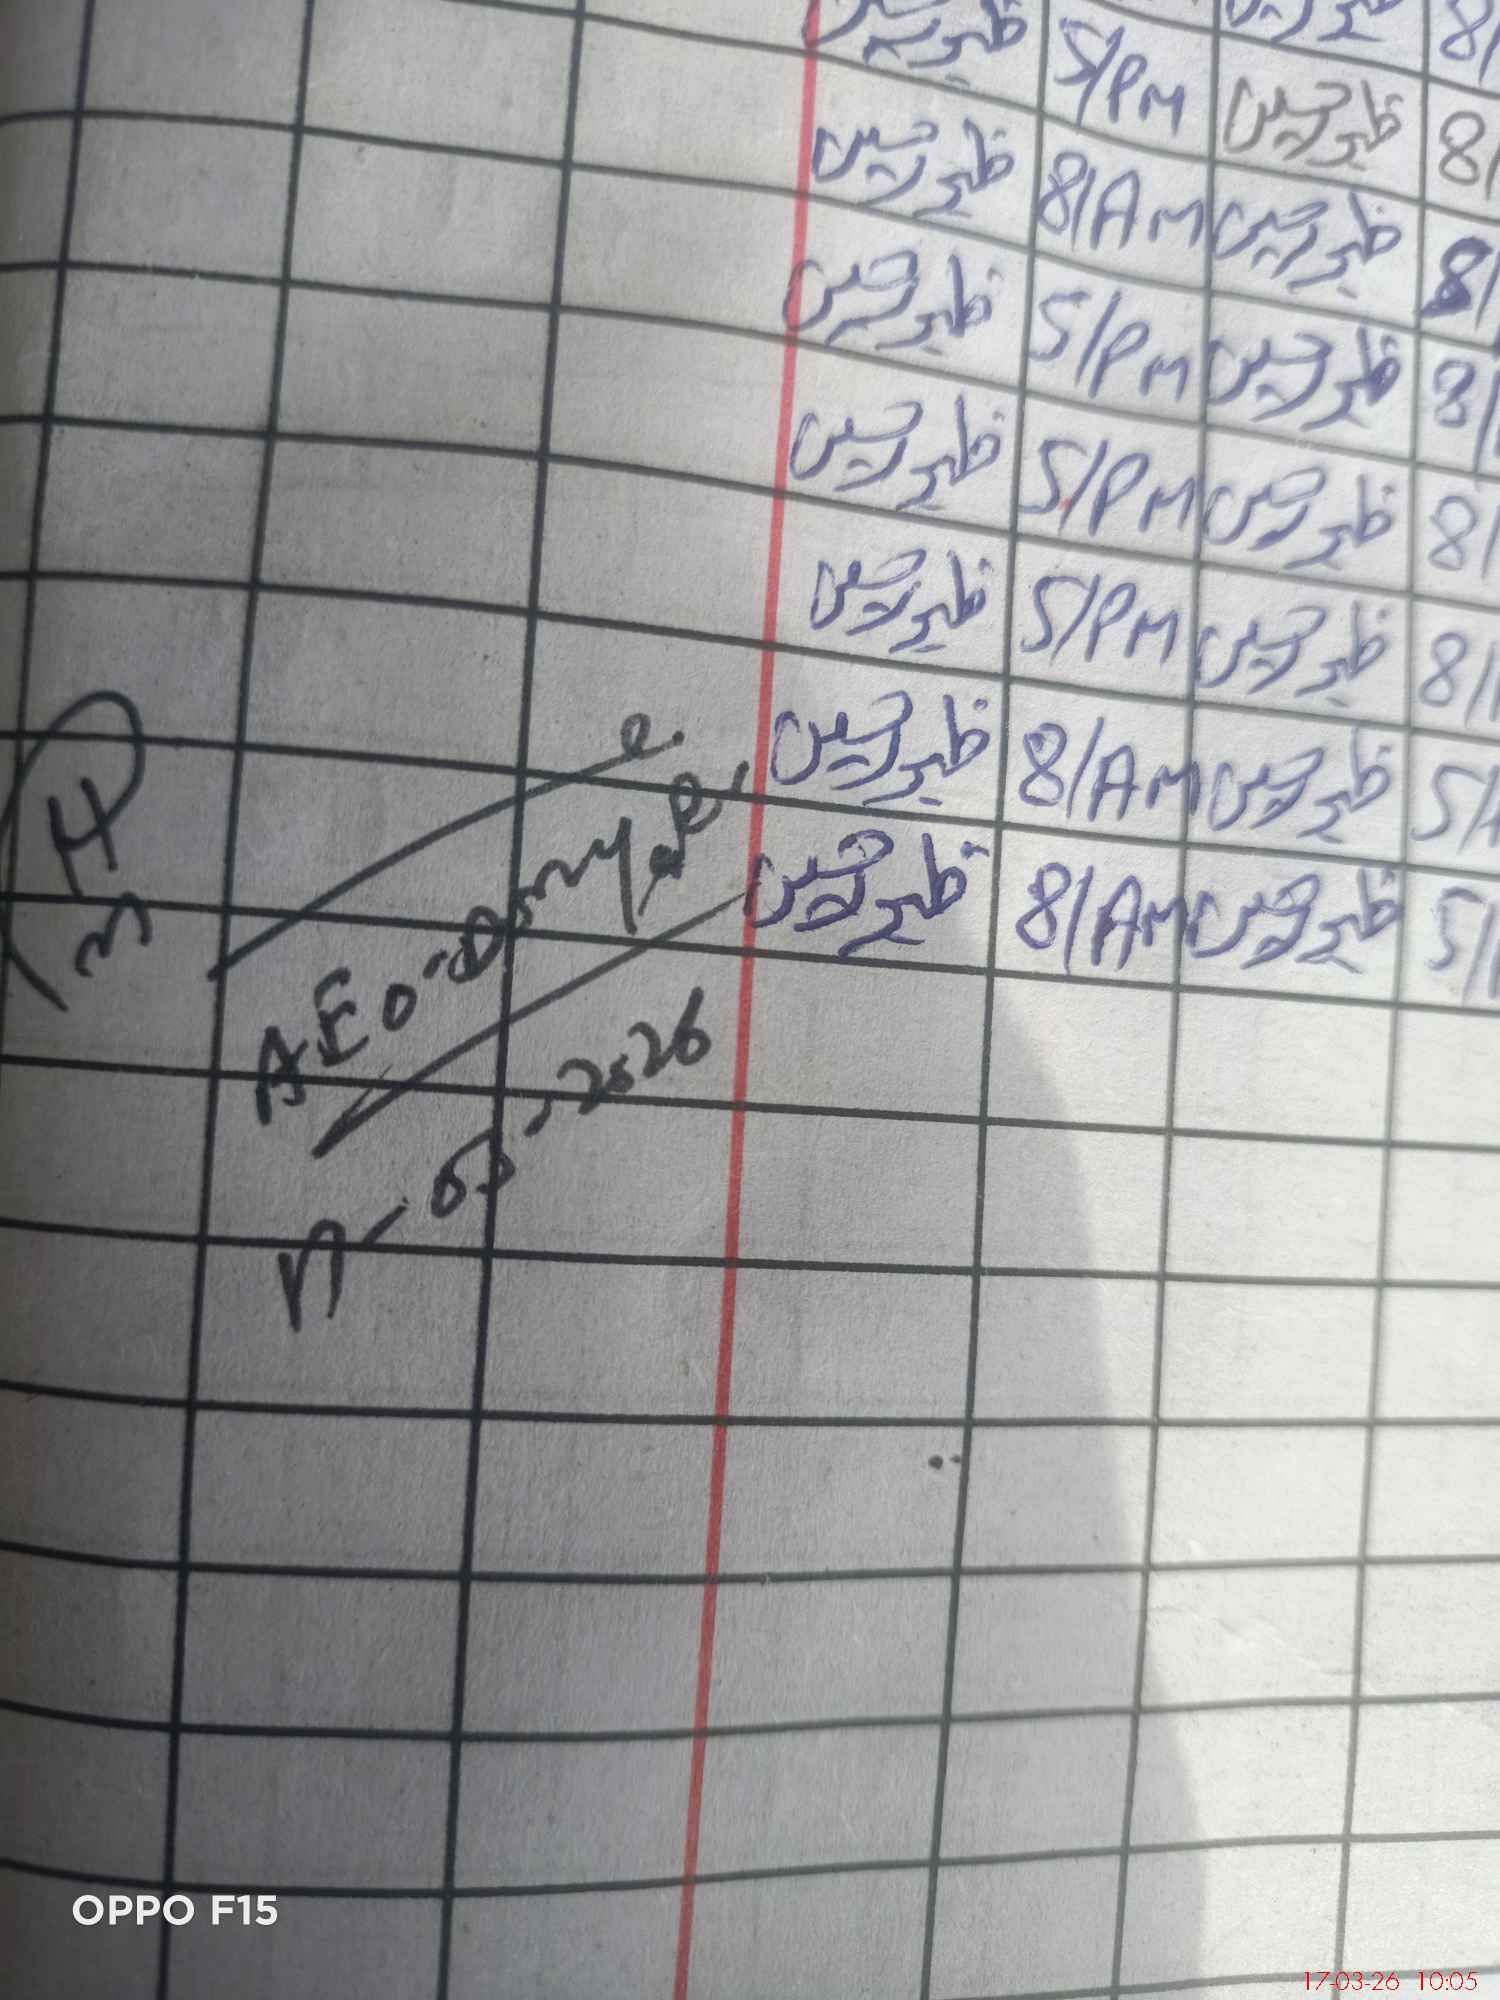 ظہیر حسین 5/PM ظہیر حسین 8/
ظہیر حسین 8/AM ظہیر حسین 8/
ظہیر حسین 5/PM ظہیر حسین 8/
ظہیر حسین 5/PM ظہیر حسین 8/
ظہیر حسین 5/PM ظہیر حسین 8/
ظہیر حسین 8/AM ظہیر حسین 5/
ظہیر حسین 8/AM ظہیر حسین 5/
AEO
2026
OPPO F15
17-03-26 10:05